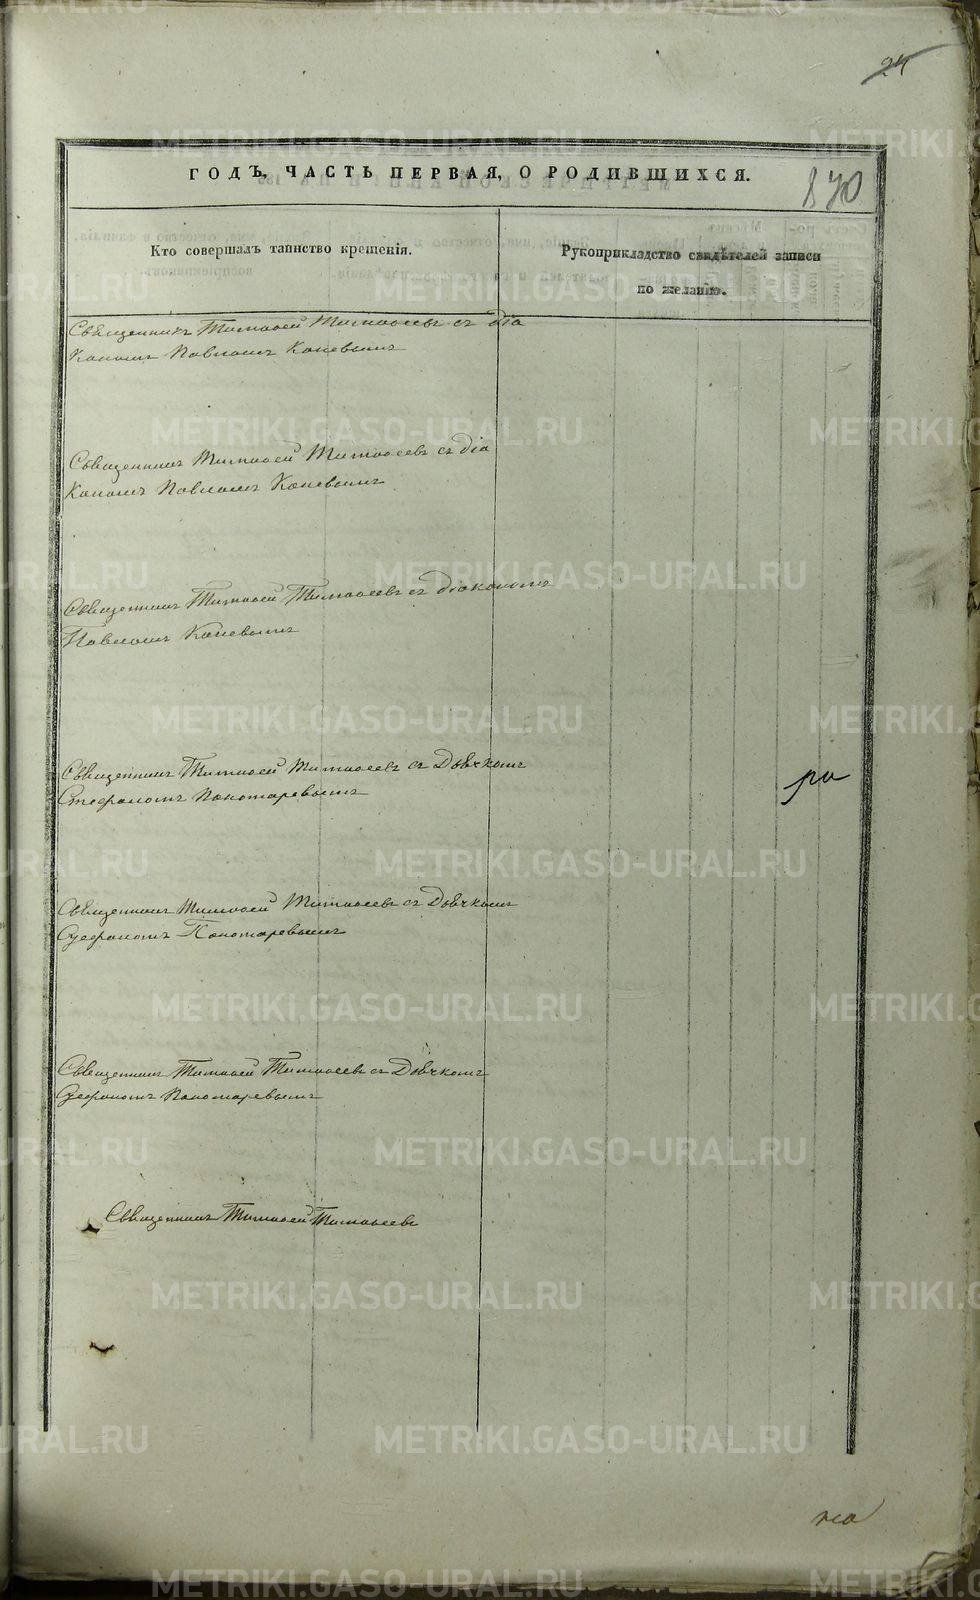 24
ГОДЪ, ЧАСТЬ ПЕРВАЯ, О РОДИВШИХСЯ.
870
Кто совершалъ таинство крещенія.
Рукоприкладство свидѣтелей записи
по желанію.
Священникъ Тимоѳей Тимоѳеевъ съ діа
кономъ Павломъ Каневымъ
Священникъ Тимоѳей Тимоѳеевъ съ діа
кономъ Павломъ Каневымъ
Священникъ Тимоѳей Тимоѳеевъ съ діакономъ
Павломъ Каневымъ
Священникъ Тимоѳей Тимоѳеевъ съ Дьячкомъ
Стефаномъ Пономаревымъ
Священникъ Тимоѳей Тимоѳеевъ съ Дьячкомъ
Стефаномъ Пономаревымъ
Священникъ Тимоѳей Тимоѳеевъ съ Дьячкомъ
Стефаномъ Пономаревымъ
Священникъ Тимоѳей Тимоѳеевъ
METRIKI.GASO-URAL.RU